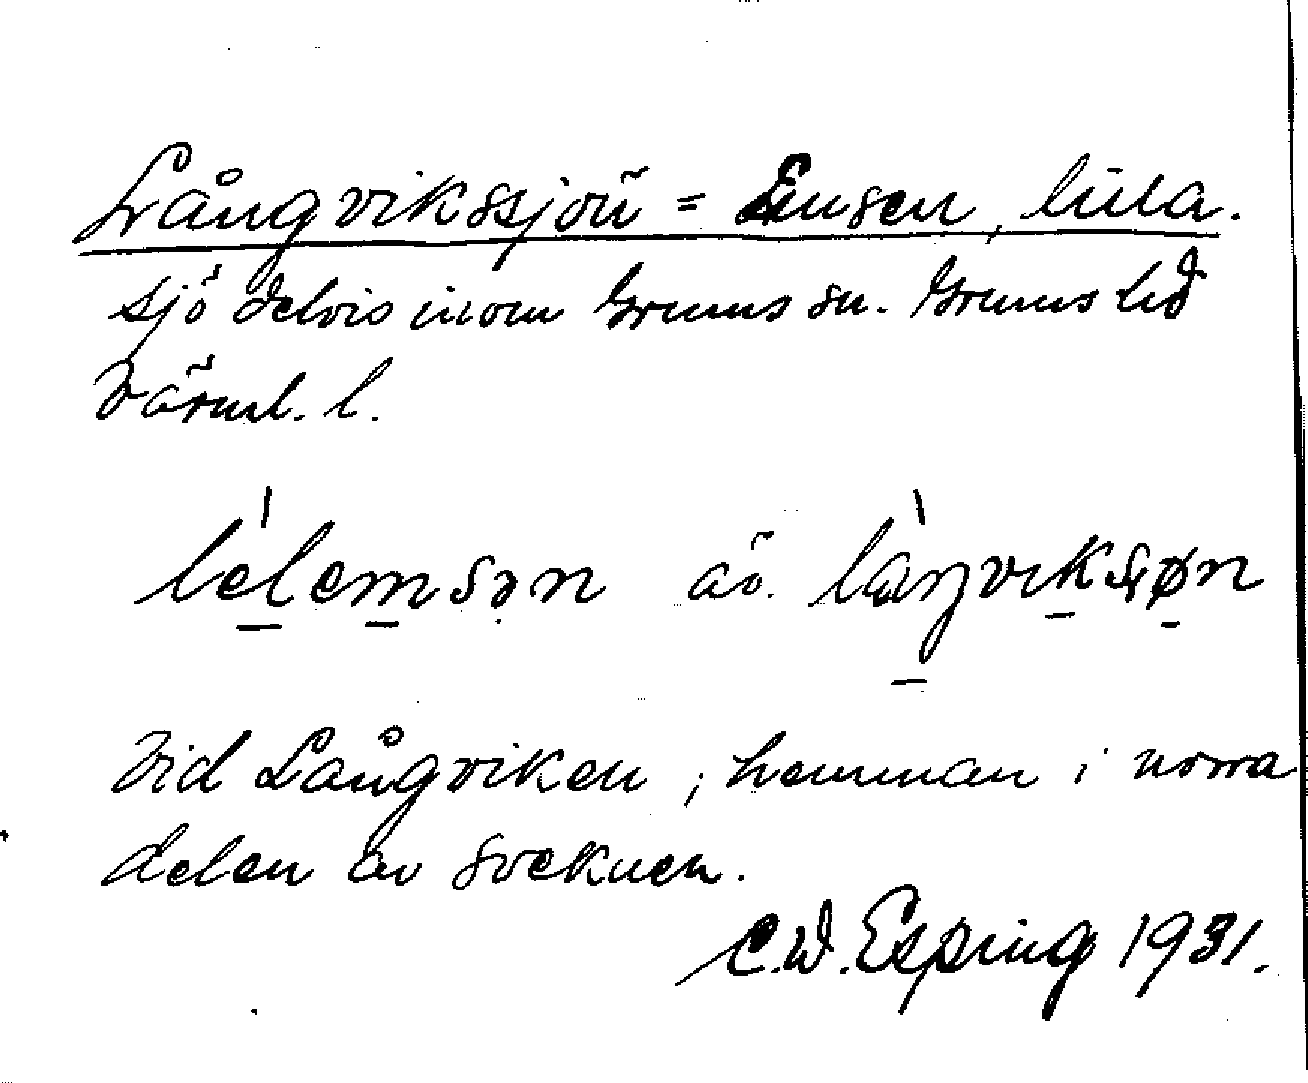 Långvikssjön = Emsen, lilla.
sjö delvis inom Grums sn. Grums hd
Värml. l.
lelemsən äv. låŋviksjøn
Vid Långviken, hemman i norra
delen av socknen.
C.W. Esping 1931.